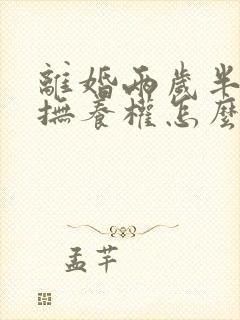 離婚兩歲半
撫養權怎麼
孟芊